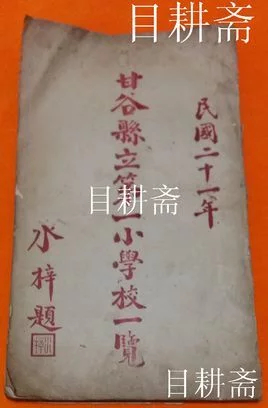 民國二十一年
甘谷縣立第一小學校一覽
水梓題
水梓
目耕斋
目耕斋
目耕斋